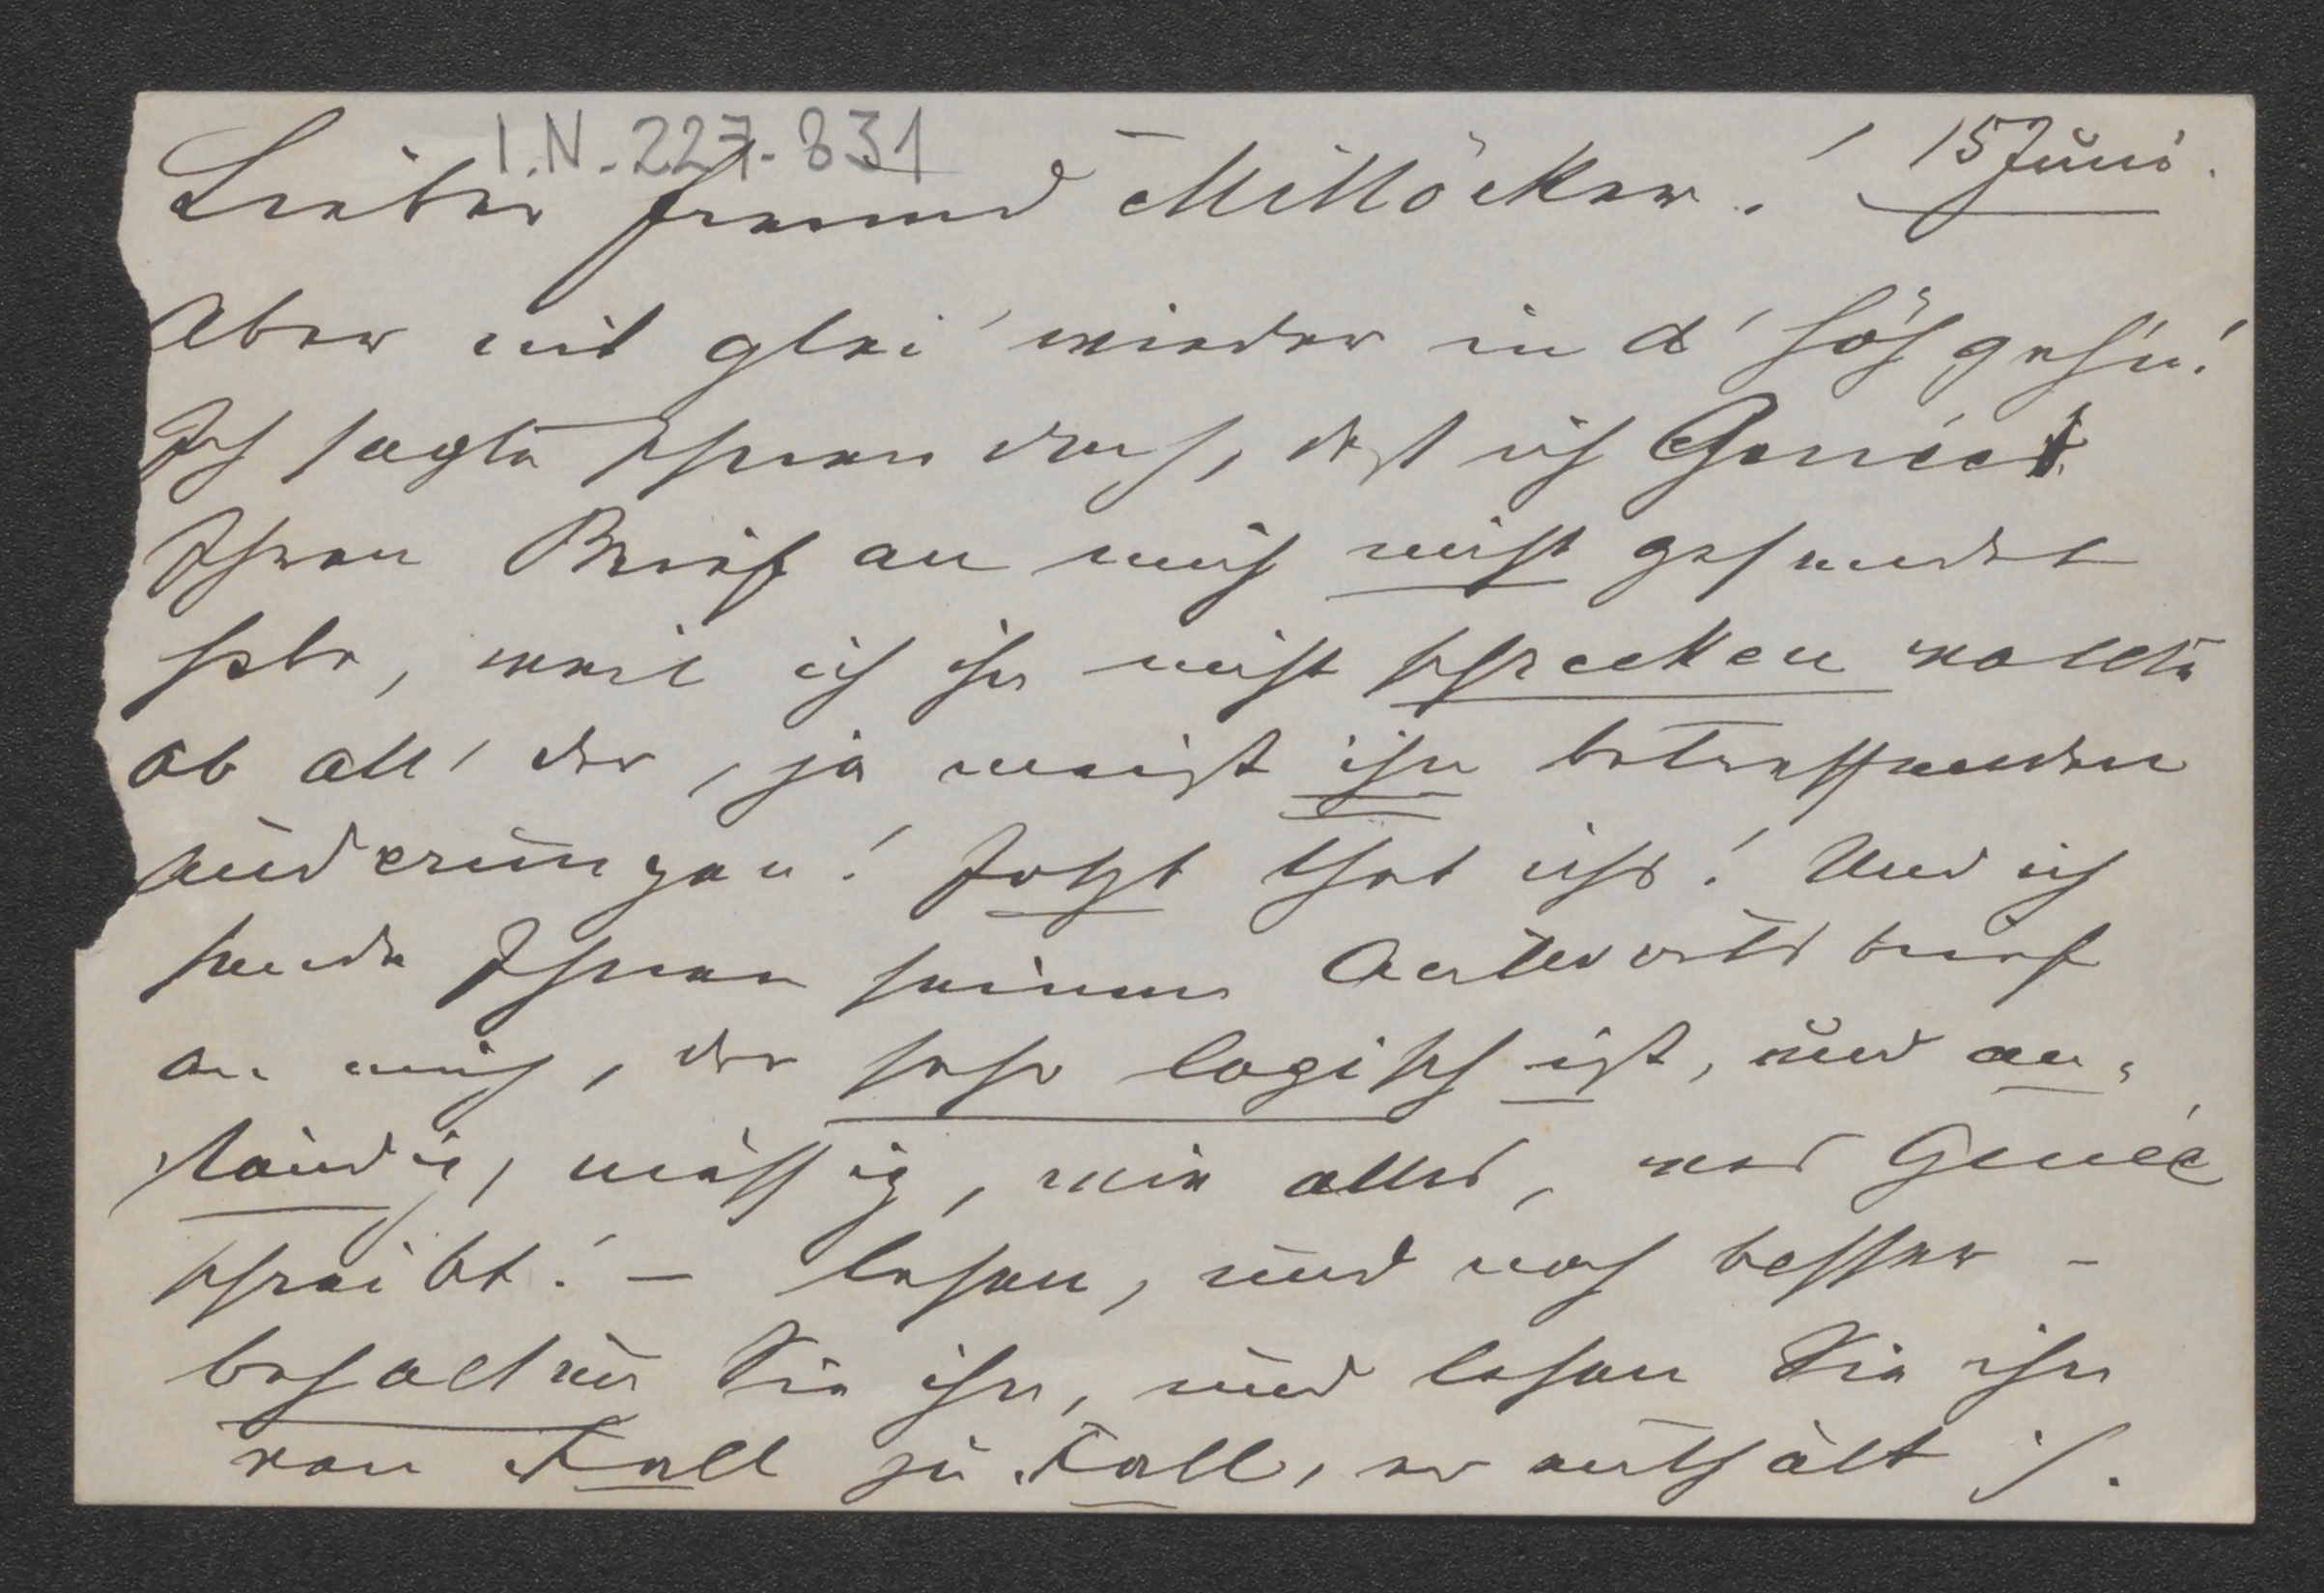 I.N. 227.831
15 Juni.
Lieber Freund Millöcker!
Aber nit glei' wieder in d' Höh geh'n!
Ich sagte Ihnen doch, daß ich Genée
Ihren Brief an mich nicht gesendet
habe, weil ich ihn nicht schrecken wollte
ob all' der, ja meist ihn betreffenden
Änderungen! Jetzt that ichs! Und ich
sende Ihnen seinen Antwortsbrief
an mich, der sehr logisch ist, und an=
ständig, mässig, wie alles, was Genée
schreibt! – lesen, und noch besser –
behalten Sie ihn, und lesen Sie ihn
von Fall zu Fall, er enthält ·/.